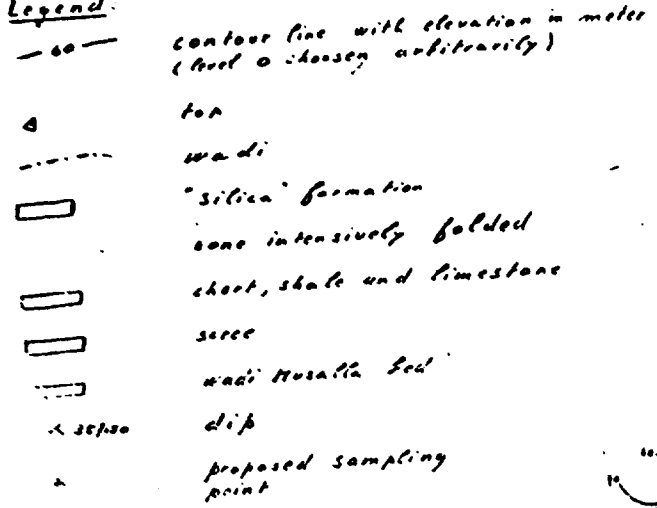 Legend:
— 60 — contour line with elevation in meter
(level 0 choosen arbitrarily)
top
wadi
"silica" formation
zone intensively folded
chert, shale and limestone
scree
wadi Musalla bed
dip
proposed sampling
point